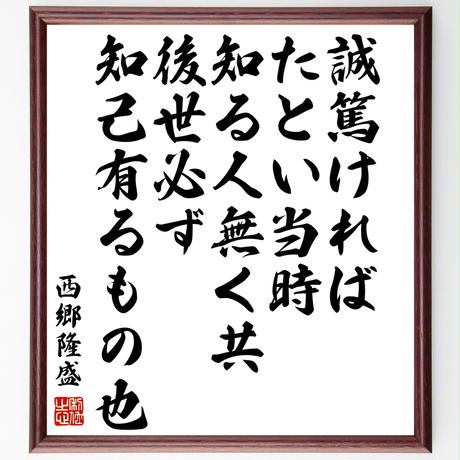 誠篤ければ
たとい当時
知る人無く共
後世必ず
知己有るもの也
西郷隆盛